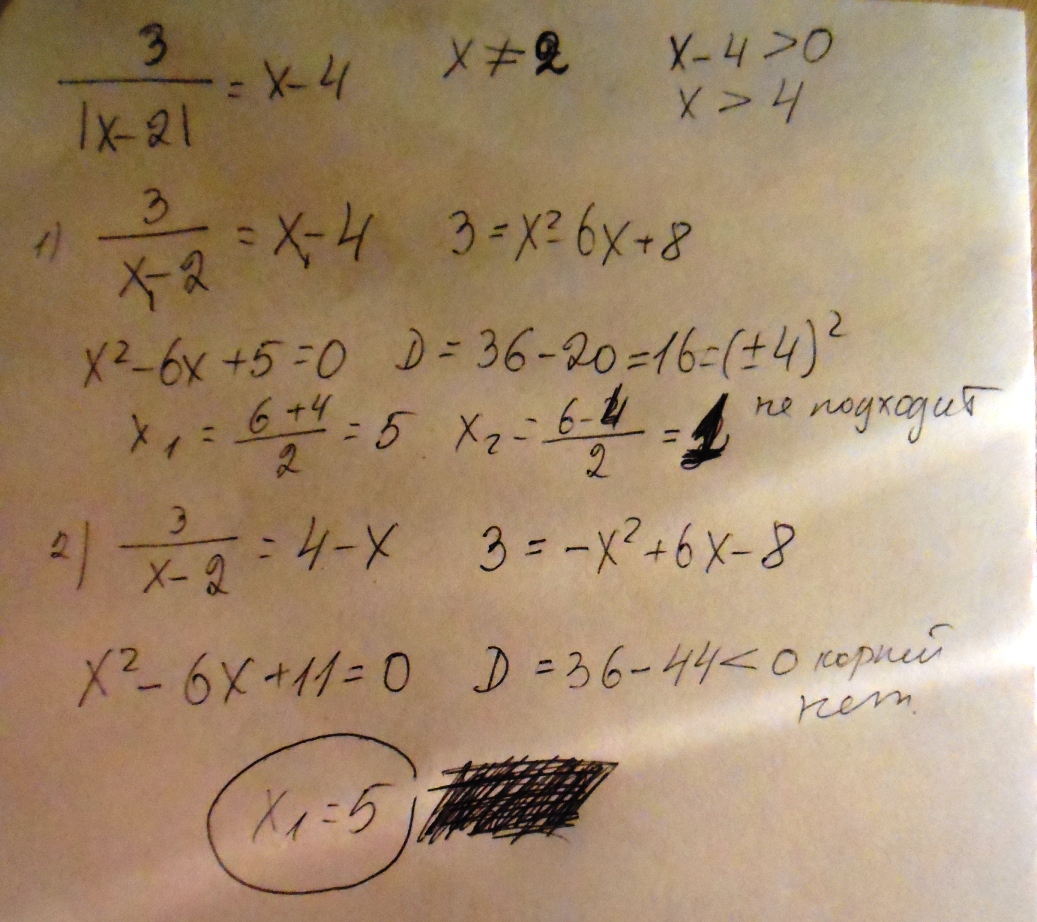 3/|x-2| = x-4 x≠2 x-4>0
x>4
1) 3/(x-2) = x-4 3=x²-6x+8
x²-6x+5=0 D=36-20=16=(±4)²
x₁=(6+4)/2=5 x₂=(6-4)/2=1 не подходит
2) 3/(x-2) = 4-x 3=-x²+6x-8
x²-6x+11=0 D=36-44<0 корней
нет.
x₁=5